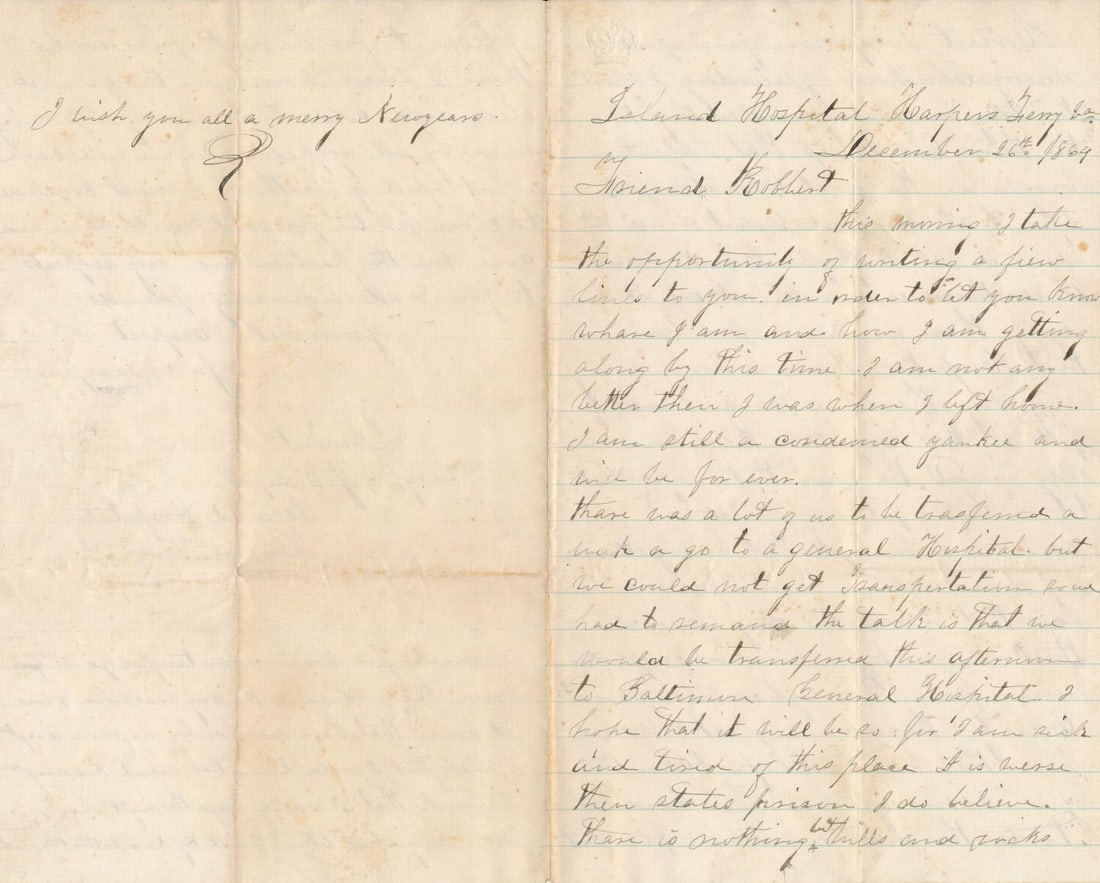 I wish you all a merry Newyears.
Island Hospital Harpers Ferry Va
December 26th 1864
Friend Robbert
this morning I take
the opportunity of writing a fiew
lines to you. in order to let you know
whare I am and how I am getting
along by this time I am not any
better then I was when I left home.
I am still a condemned yankee and
will be for ever.
thare was a lot of us to be trasferred a
week a go to a general Hospital. but
we could not get Transpertation so we
had to remaind the talk is that we
would be transferred this afternoon
to Baltimore General Hospital. I
hope that it will be so for I am sick
and tired of this place it is werse
then states prison I do believe.
Thare is nothing but hills and rocks